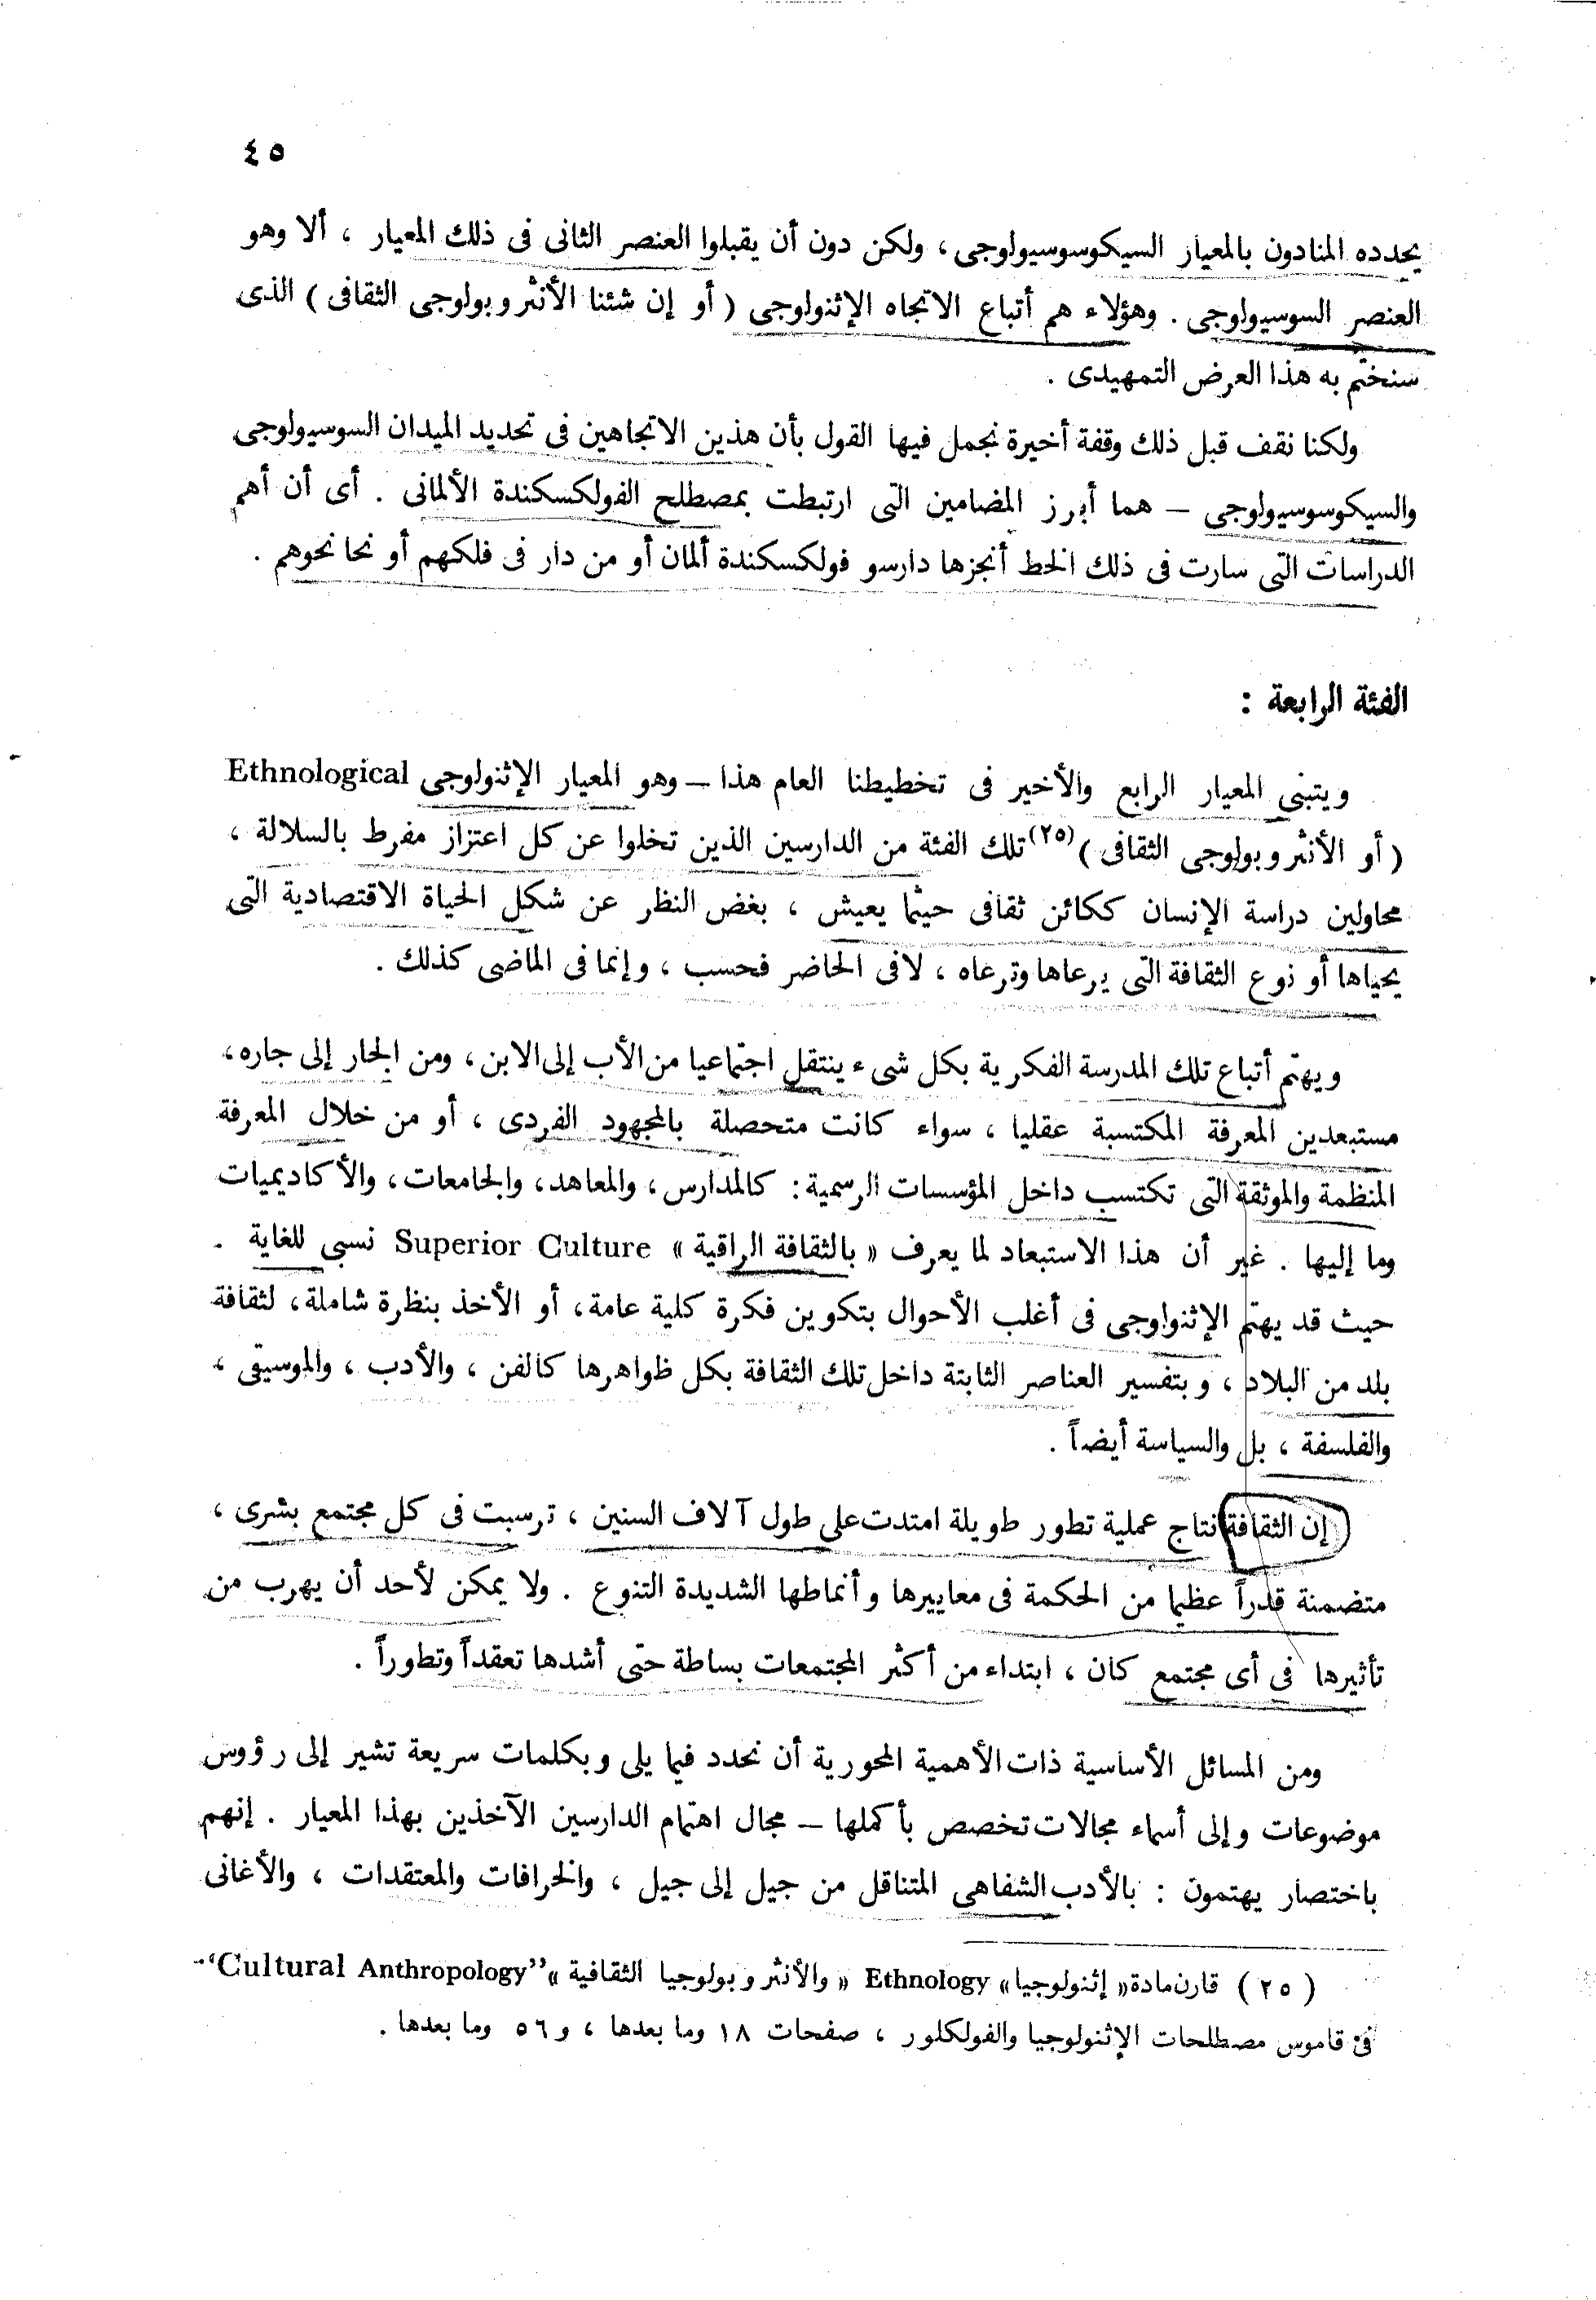 ٤٥
يحدده المنادون بالمعيار السيكوسوسيولوجى ، ولكن دون أن يقبلوا العنصر الثانى فى ذلك المعيار ، ألا وهو
العنصر السوسيولوجى . وهؤلاء هم أتباع الاتجاه الإثنولوجى ( أو إن شئنا الأنثروبولوجى الثقافى ) الذى
سنختم به هذا العرض التمهيدى .
ولكنا نقف قبل ذلك وقفة أخيرة نجمل فيها القول بأن هذين الاتجاهين فى تحديد الميدان السوسيولوجى
والسيكوسوسيولوجى – هما أبرز المضامين التى ارتبطت بمصطلح الفولكسكندة الألمانى . أى أن أهم
الدراسات التى سارت فى ذلك الخط أنجزها دارسو فولكسكندة ألمان أو من دار فى فلكهم أو نحا نحوهم .
الفئة الرابعة :
ويتبنى المعيار الرابع والأخير فى تخطيطنا العام هذا – وهو المعيار الإثنولوجى Ethnological
( أو الأنثروبولوجى الثقافى ) (٢٥) تلك الفئة من الدارسين الذين تخلوا عن كل اعتزاز مفرط بالسلالة ،
محاولين دراسة الإنسان ككائن ثقافى حيثما يعيش ، بغض النظر عن شكل الحياة الاقتصادية التى
يحياها أو نوع الثقافة التى يرعاها وترعاه ، لا فى الحاضر فحسب ، وإنما فى الماضى كذلك .
ويهتم أتباع تلك المدرسة الفكرية بكل شىء ينتقل اجتماعيا من الأب إلى الابن ، ومن الجار إلى جاره ،
مستبعدين المعرفة المكتسبة عقليا ، سواء كانت متحصلة بالمجهود الفردى ، أو من خلال المعرفة
المنظمة والموثقة التى تكتسب داخل المؤسسات الرسمية : كالمدارس ، والمعاهد ، والجامعات ، والأكاديميات
وما إليها . غير أن هذا الاستبعاد لما يعرف « بالثقافة الراقية » Superior Culture نسبى للغاية .
حيث قد يهتم الإثنولوجى فى أغلب الأحوال بتكوين فكرة كلية عامة ، أو الأخذ بنظرة شاملة ، لثقافة
بلد من البلاد ، وبتفسير العناصر الثابتة داخل تلك الثقافة بكل ظواهرها كالفن ، والأدب ، والموسيقى ،
والفلسفة ، بل والسياسة أيضاً .
إن الثقافة نتاج عملية تطور طويلة امتدت على طول آلاف السنين ، ترسبت فى كل مجتمع بشرى ،
متضمنة قدراً عظيما من الحكمة فى معاييرها وأنماطها الشديدة التنوع . ولا يمكن لأحد أن يهرب من
تأثيرها فى أى مجتمع كان ، ابتداء من أكثر المجتمعات بساطة حتى أشدها تعقداً وتطوراً .
ومن المسائل الأساسية ذات الأهمية المحورية أن نحدد فيما يلى وبكلمات سريعة تشير إلى رؤوس
موضوعات وإلى أسماء مجالات تخصص بأكملها – مجال اهتمام الدارسين الآخذين بهذا المعيار . إنهم
باختصار يهتمون : بالأدب الشفاهى المتناقل من جيل إلى جيل ، والخرافات والمعتقدات ، والأغانى
( ٢٥ ) قارن مادة « إثنولوجيا » Ethnology « والأنثروبولوجيا الثقافية » “Cultural Anthropology”
فى قاموس مصطلحات الإثنولوجيا والفولكلور ، صفحات ١٨ وما بعدها ، و ٥٦ وما بعدها .